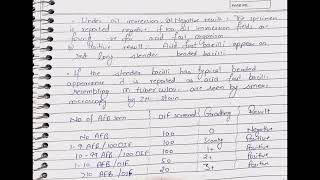 Under oil immersion. a) Negative result. The specimen
is reported negative if 100 oil immersion fields are
found acid fast organism
b) Positive result. Acid fast bacilli appear as
red long slender beaded bacilli.
If the slender bacilli has typical beaded
appearance it is reported as acid fast bacilli
resembling tubercu as seen by smear
microscopy by ZN stain.
No of AFB seen OIF screened Grading Result
No AFB 100 0 Negative
1-9 AFB/100 OIF 100 Scanty Positive
10-99 AFB/100 OIF 100 1+ Positive
1-10 AFB/OIF 50 2+ Positive
>10 AFB/OIF 20 3+ Positive